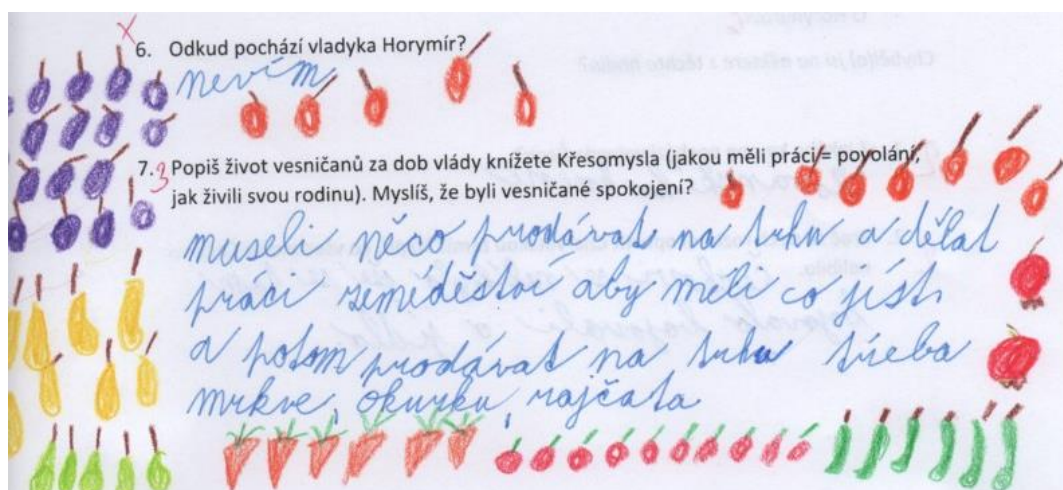 6. Odkud pochází vladyka Horymír?
nevím
7. Popiš život vesničanů za dob vlády knížete Křesomysla (jakou měli práci = povolání,
jak živili svou rodinu). Myslíš, že byli vesničané spokojení?
museli něco prodávat na trhu a dělat
práci zemědělství aby měli co jíst
a potom prodávat na trhu třeba
mrkve, okurku, rajčata